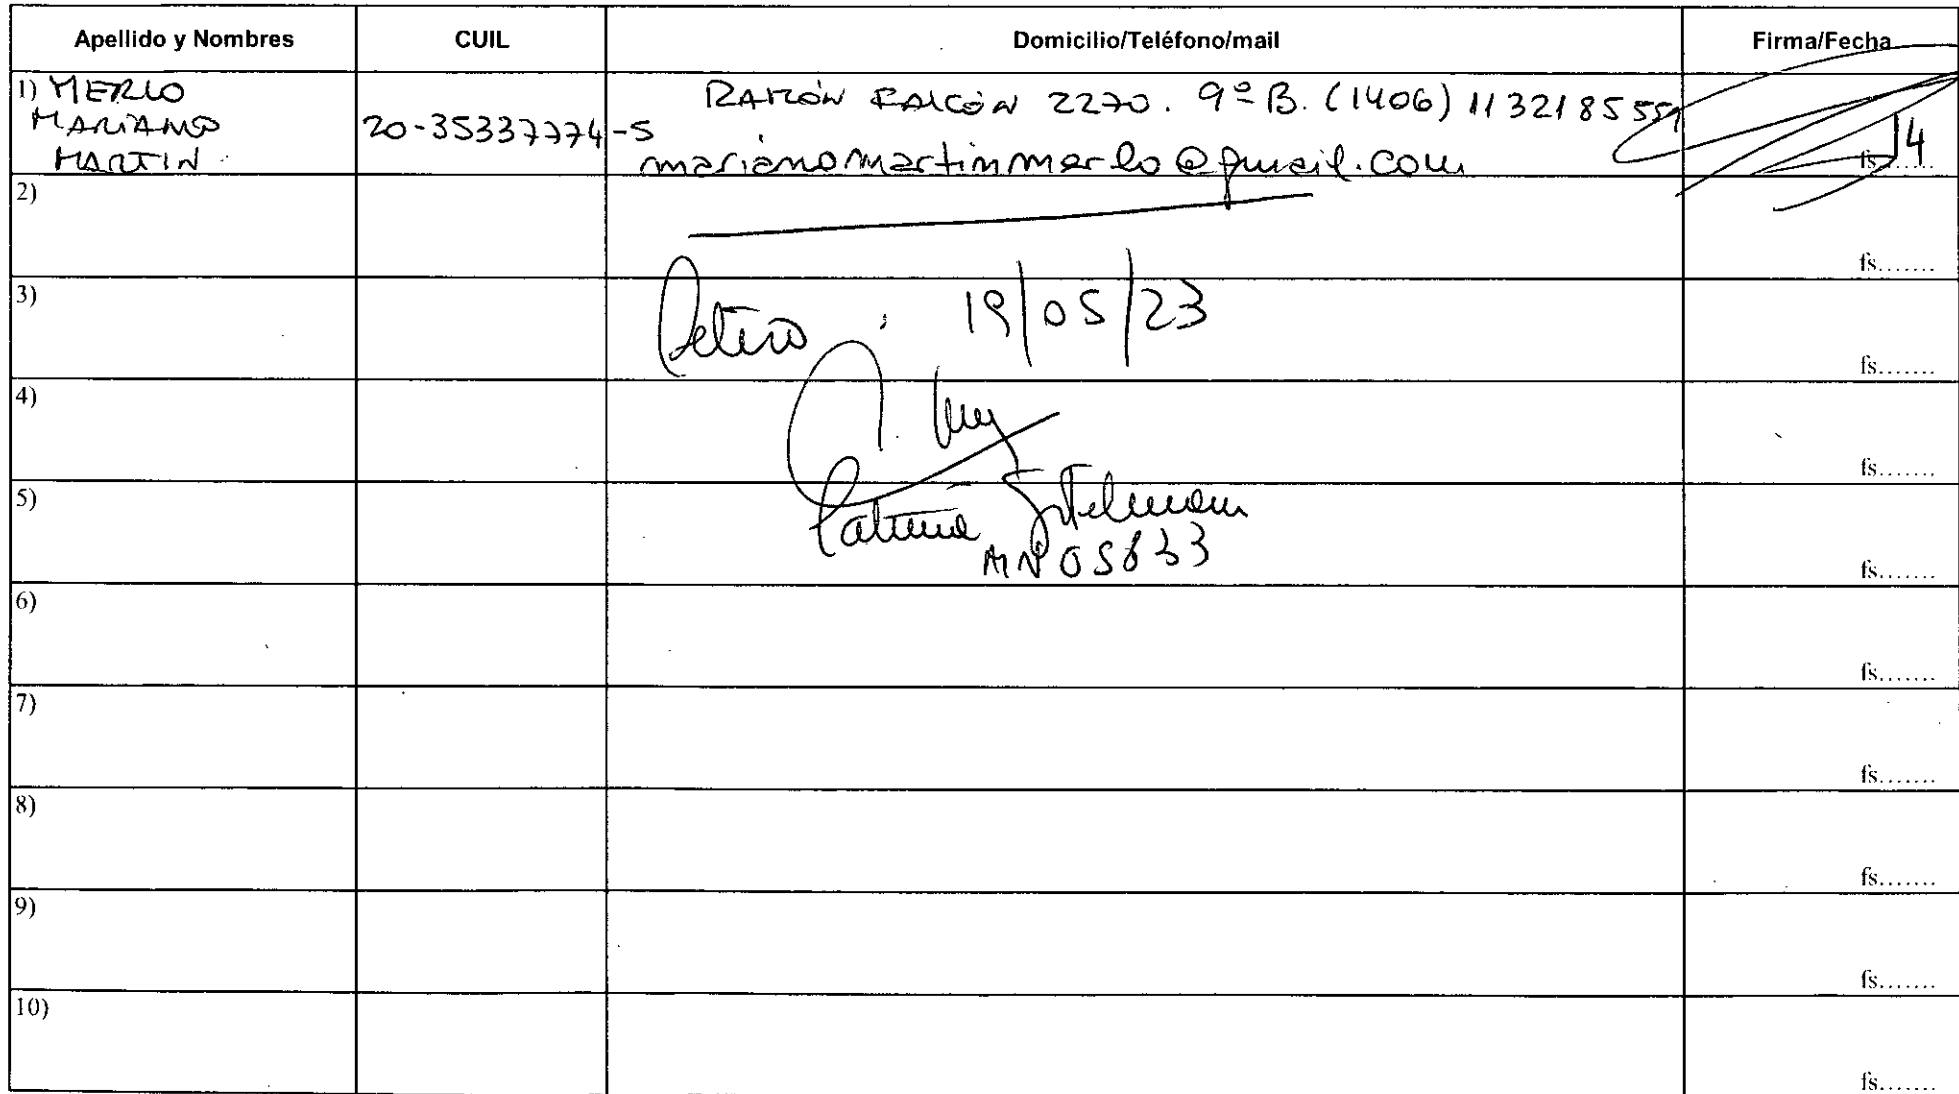 Apellido y Nombres CUIL Domicilio/Teléfono/mail Firma/Fecha
1) MERLO
MARIANO
MARTIN
20-35337774-5
RAMÓN FALCÓN 2270. 9º B. (1406) 1132185559
marianomartinmerlo@gmail.com
fs....... 14
2)
fs.......
3)
Retiro : 19/05/23
fs.......
4)
fs.......
5)
Patricia
fs.......
6)
fs.......
7)
fs.......
8)
fs.......
9)
fs.......
10)
fs.......